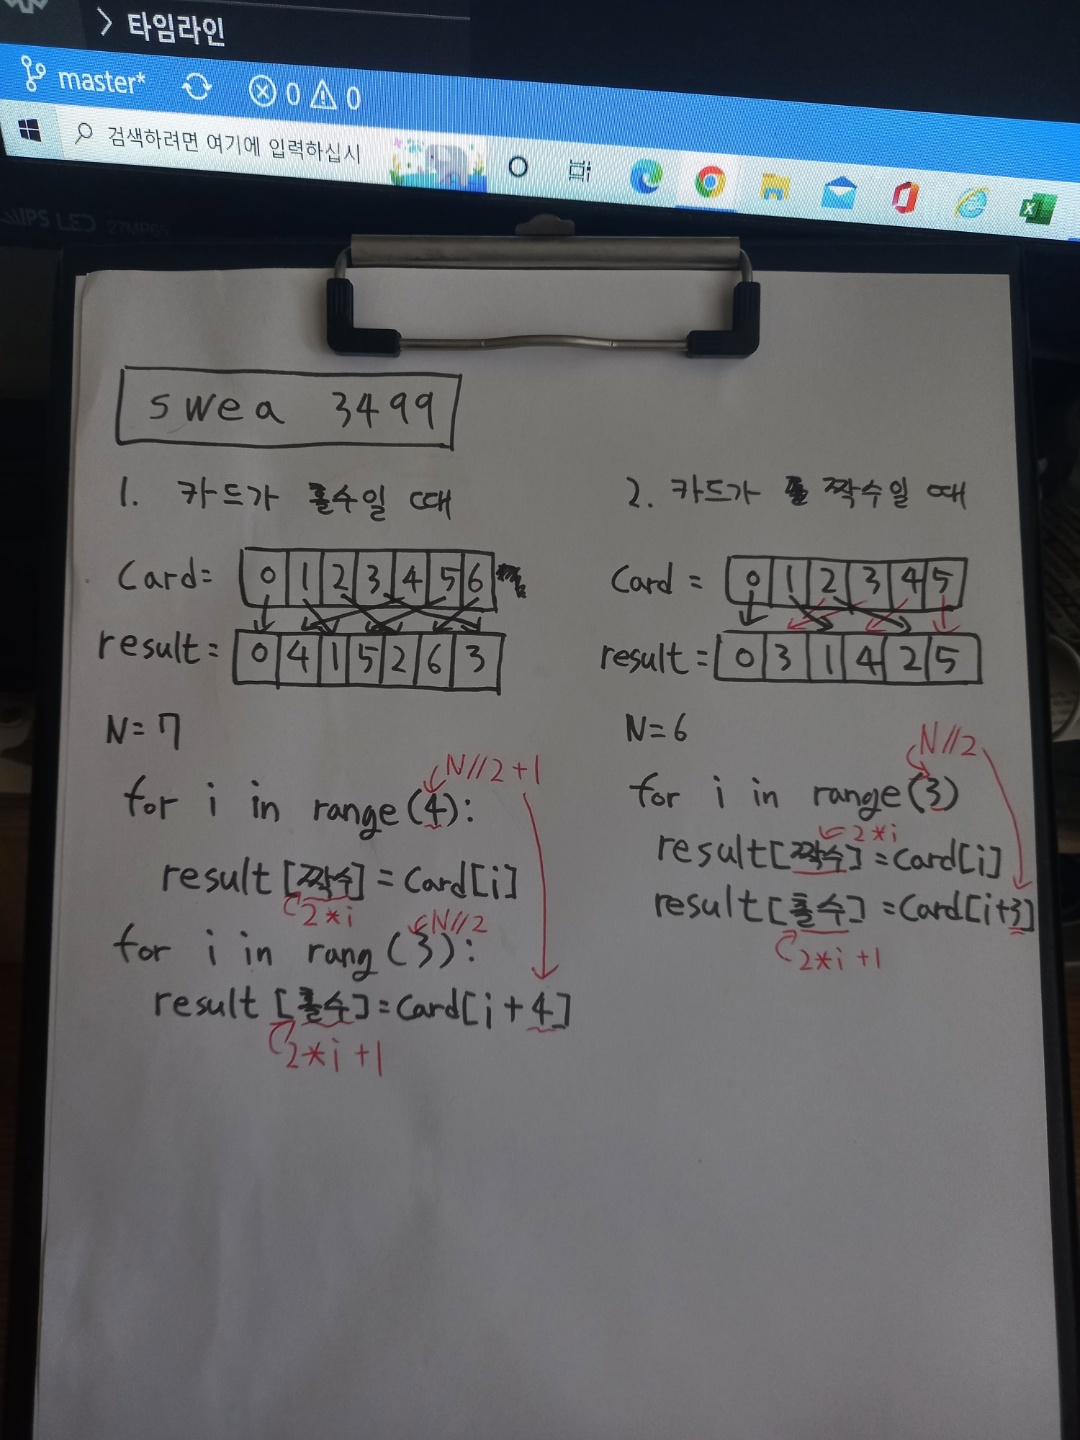 타임라인
master* 0 0
검색하려면 여기에 입력하십시
IPS LED 27MP65
swea 3499
1. 카드가 홀수일 때
Card= 0 1 2 3 4 5 6
result= 0 4 1 5 2 6 3
N=7
N//2+1
for i in range(4):
result[짝수]=Card[i]
2*i
N//2
for i in rang(3):
result[홀수]=Card[i+4]
2*i+1
2. 카드가 짝수일 때
Card = 0 1 2 3 4 5
result= 0 3 1 4 2 5
N=6
N//2
for i in range(3)
2*i
result[짝수]=Card[i]
result[홀수]=Card[i+3]
2*i+1